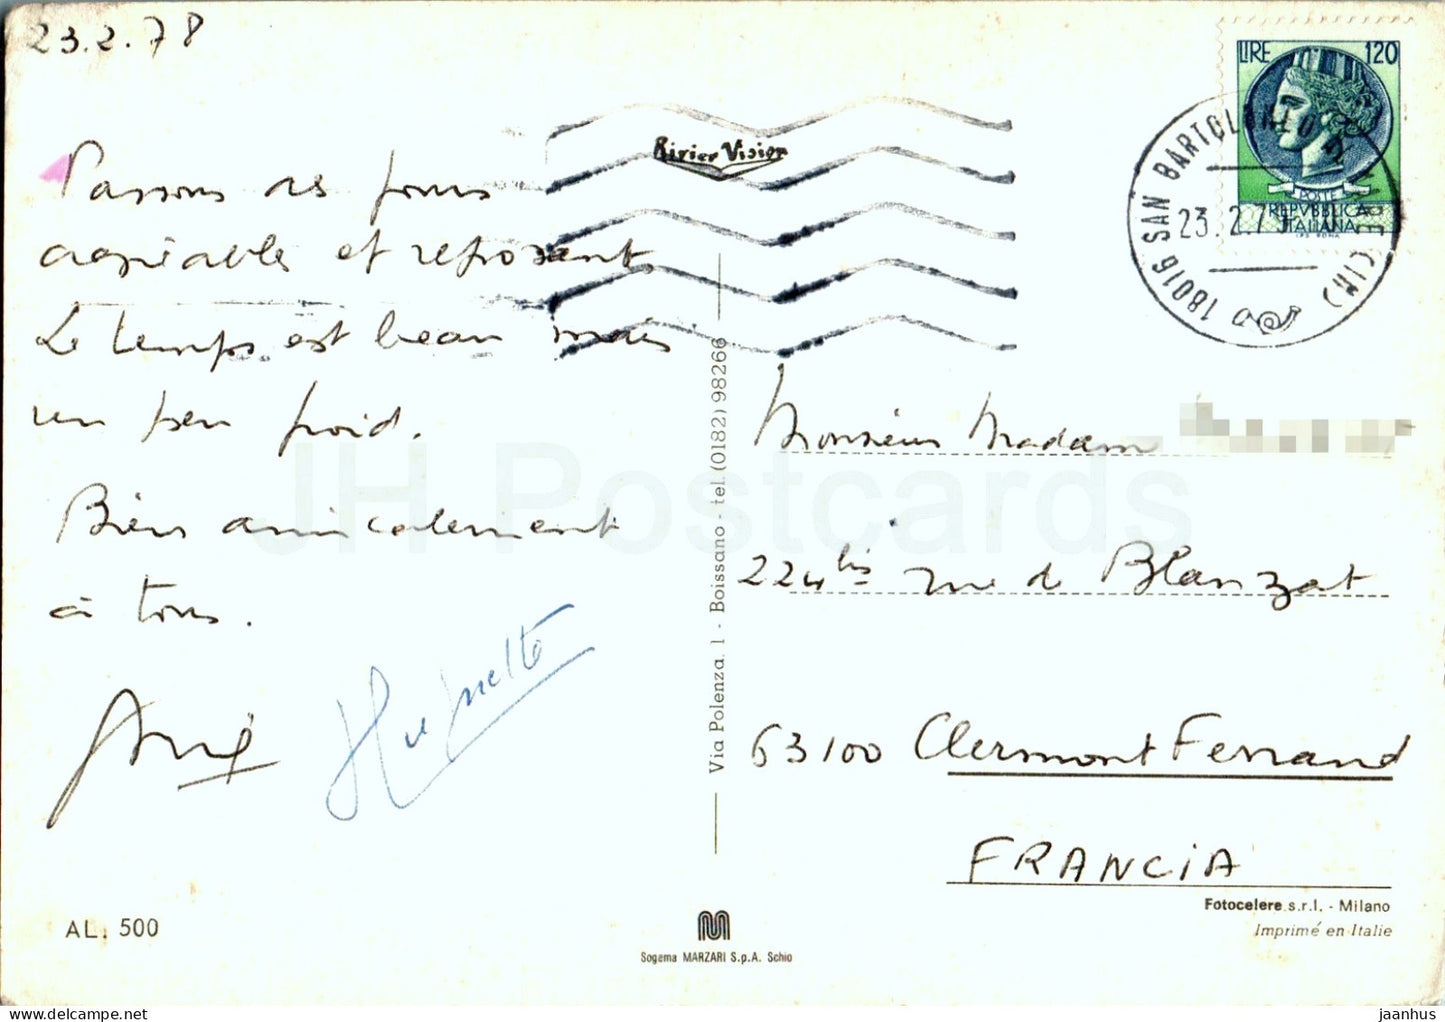 23.2.78
Passons des jours
agréables et reposants
Le temps est beau mais
un peu froid.
Bien amicalement
à tous.
Huguette
AL. 500
Rivier Vision
Via Polenza, 1 - Boissano - tel. (0182) 98266
Sogema MARZARI S.p.A. Schio
LIRE 120
POSTE
REPVBBLICA
ITALIANA
I.P.S. ROMA
18016 SAN BARTOLOMEO AL MARE (IM)
23.2.7
Monsieur Madame
224 bis rue de Blanzat
63100 Clermont Ferrand
FRANCIA
Fotocelere s.r.l. - Milano
Imprimé en Italie
JH Postcards
delcampe.net
jaanhus